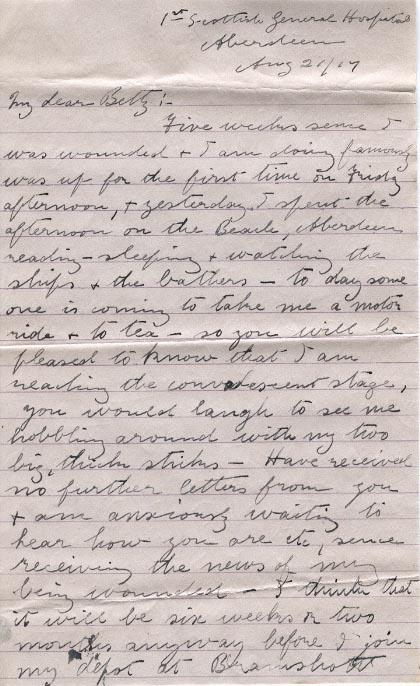 1st Scottish General Hospital
Aberdeen
Aug 20/17
My dear Betty :-
Five weeks sence I
was wounded + I am doing famously
was up for the first time on Friday
afternoon, + yesterday I spent the
afternoon on the Beach, Aberdeen
reading - sleeping + watching the
ships + the bathers - to day some
one is coming to take me a motor
ride + to tea - so you will be
pleased to know that I am
reaching the convalescent stage,
you would laugh to see me
hobbling around with my two
big, thick sticks - Have received
no further letters from you
+ am anxiously waiting to
hear how you are etc, sence
receiving the news of my
being wounded - I think that
it will be six weeks or two
months anyway before I join
my depot at Bramshott